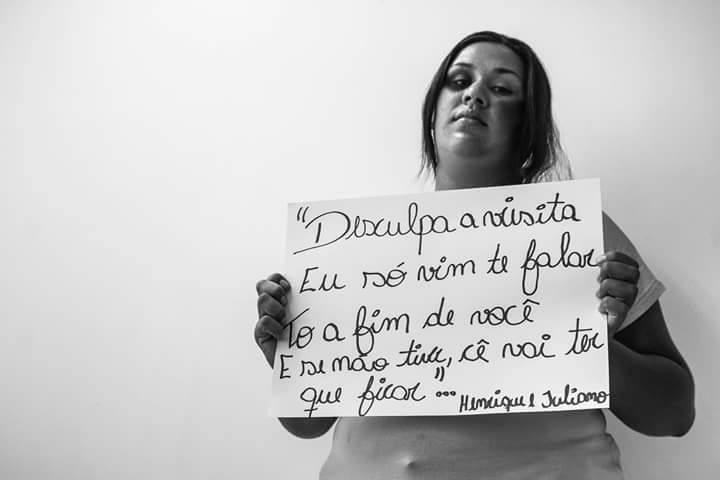 "Desculpa a visita
Eu só vim te falar
To a fim de você
E se não tiver, cê vai ter
que ficar"...
Henrique e Juliano